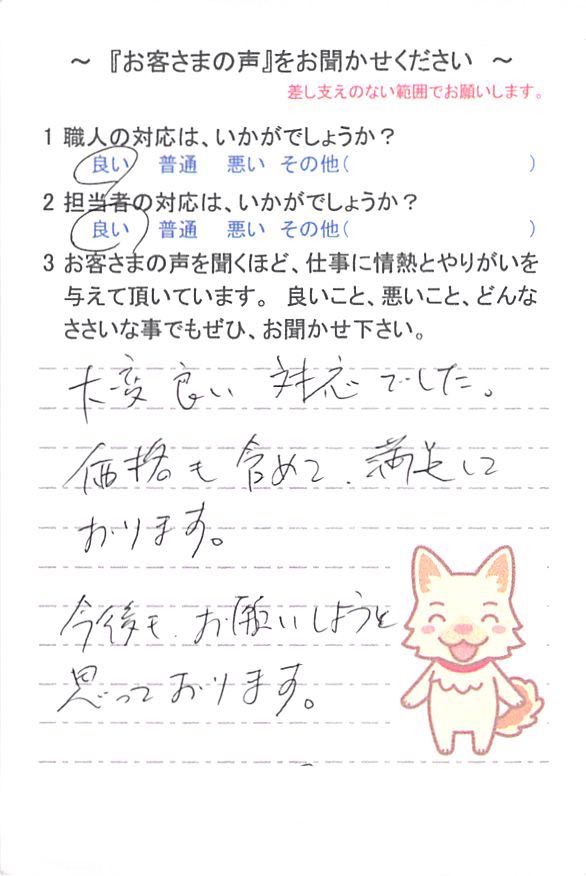 ～ 『お客さまの声』をお聞かせください ～
差し支えのない範囲でお願いします。
1 職人の対応は、いかがでしょうか？
良い 普通 悪い その他( )
2 担当者の対応は、いかがでしょうか？
良い 普通 悪い その他( )
3 お客さまの声を聞くほど、仕事に情熱とやりがいを
与えて頂いています。 良いこと、悪いこと、どんな
ささいな事でもぜひ、お聞かせ下さい。
大変良い対応でした。
価格も含めて、満足して
おります。
今後も、お願いしようと
思っております。